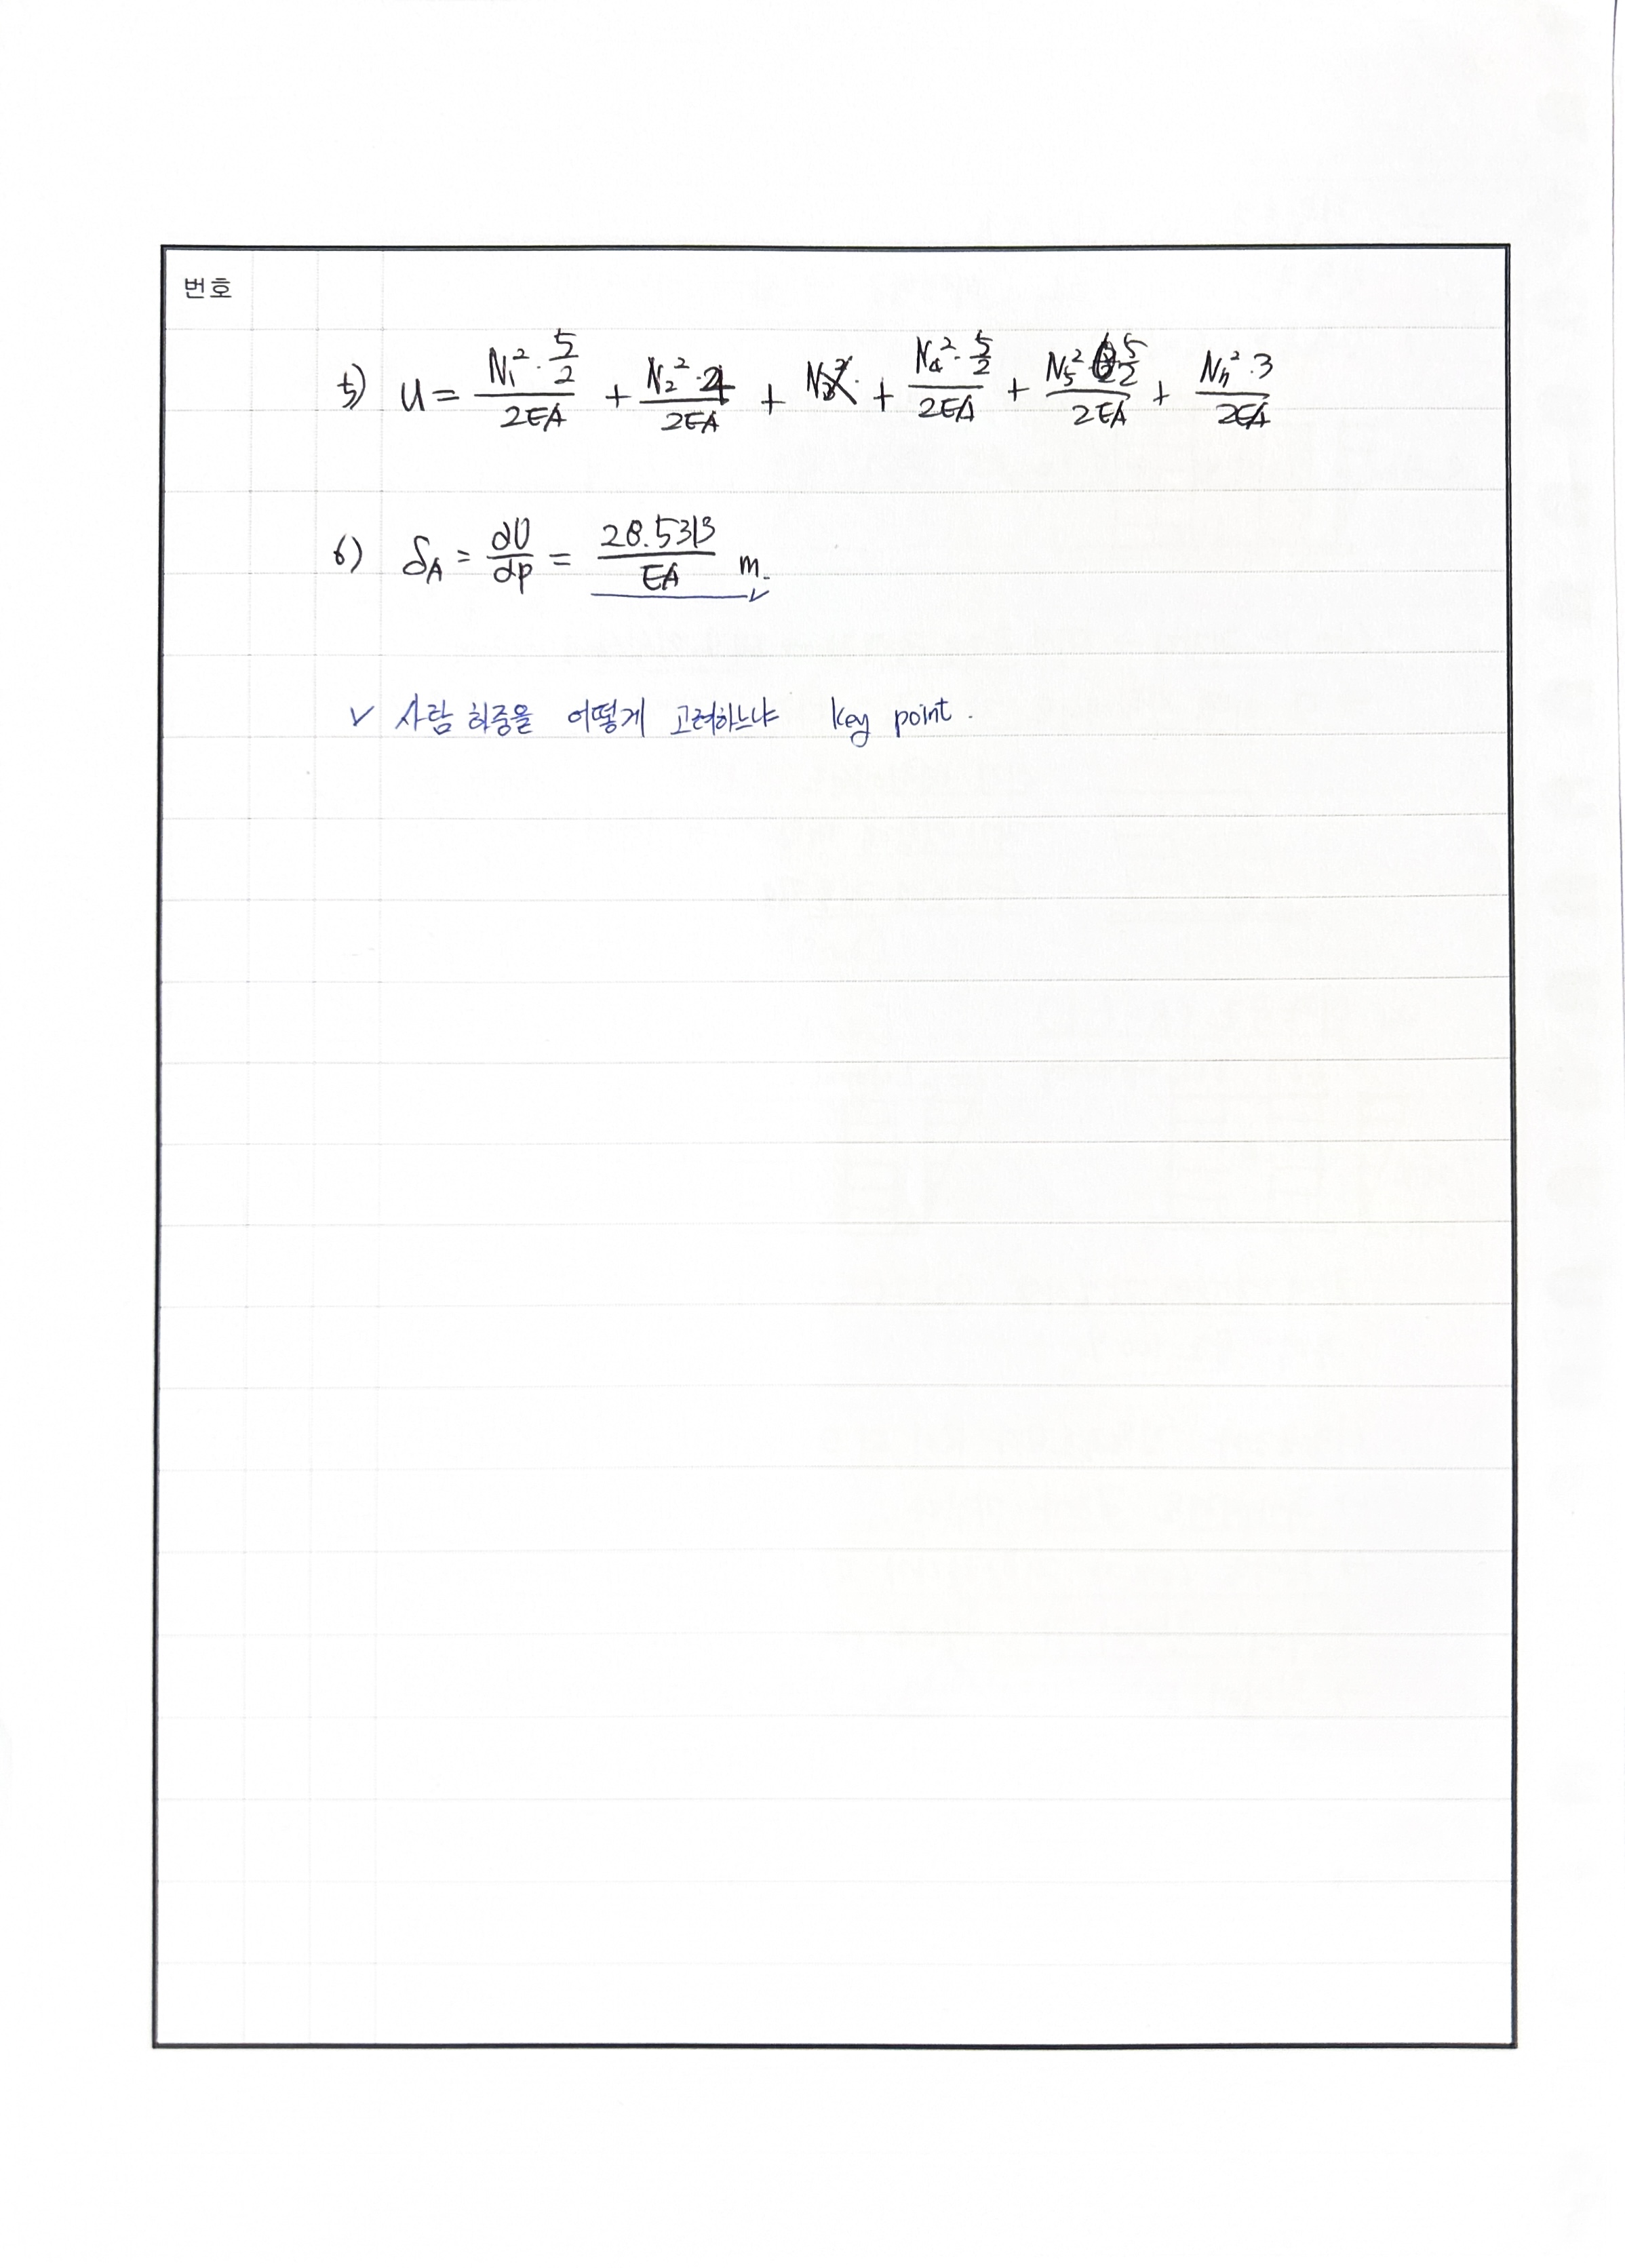 번호
5) U = N₁²·5/2 / 2EA + N₂²·4 / 2EA + + N₄²·5/2 / 2EA + N₅²·5/2 / 2EA + ²·3 / 2EA
6) δA = ∂U/∂P = 28.5313 / EA m.
✓ 사람 하중을 어떻게 고려하느냐 key point.